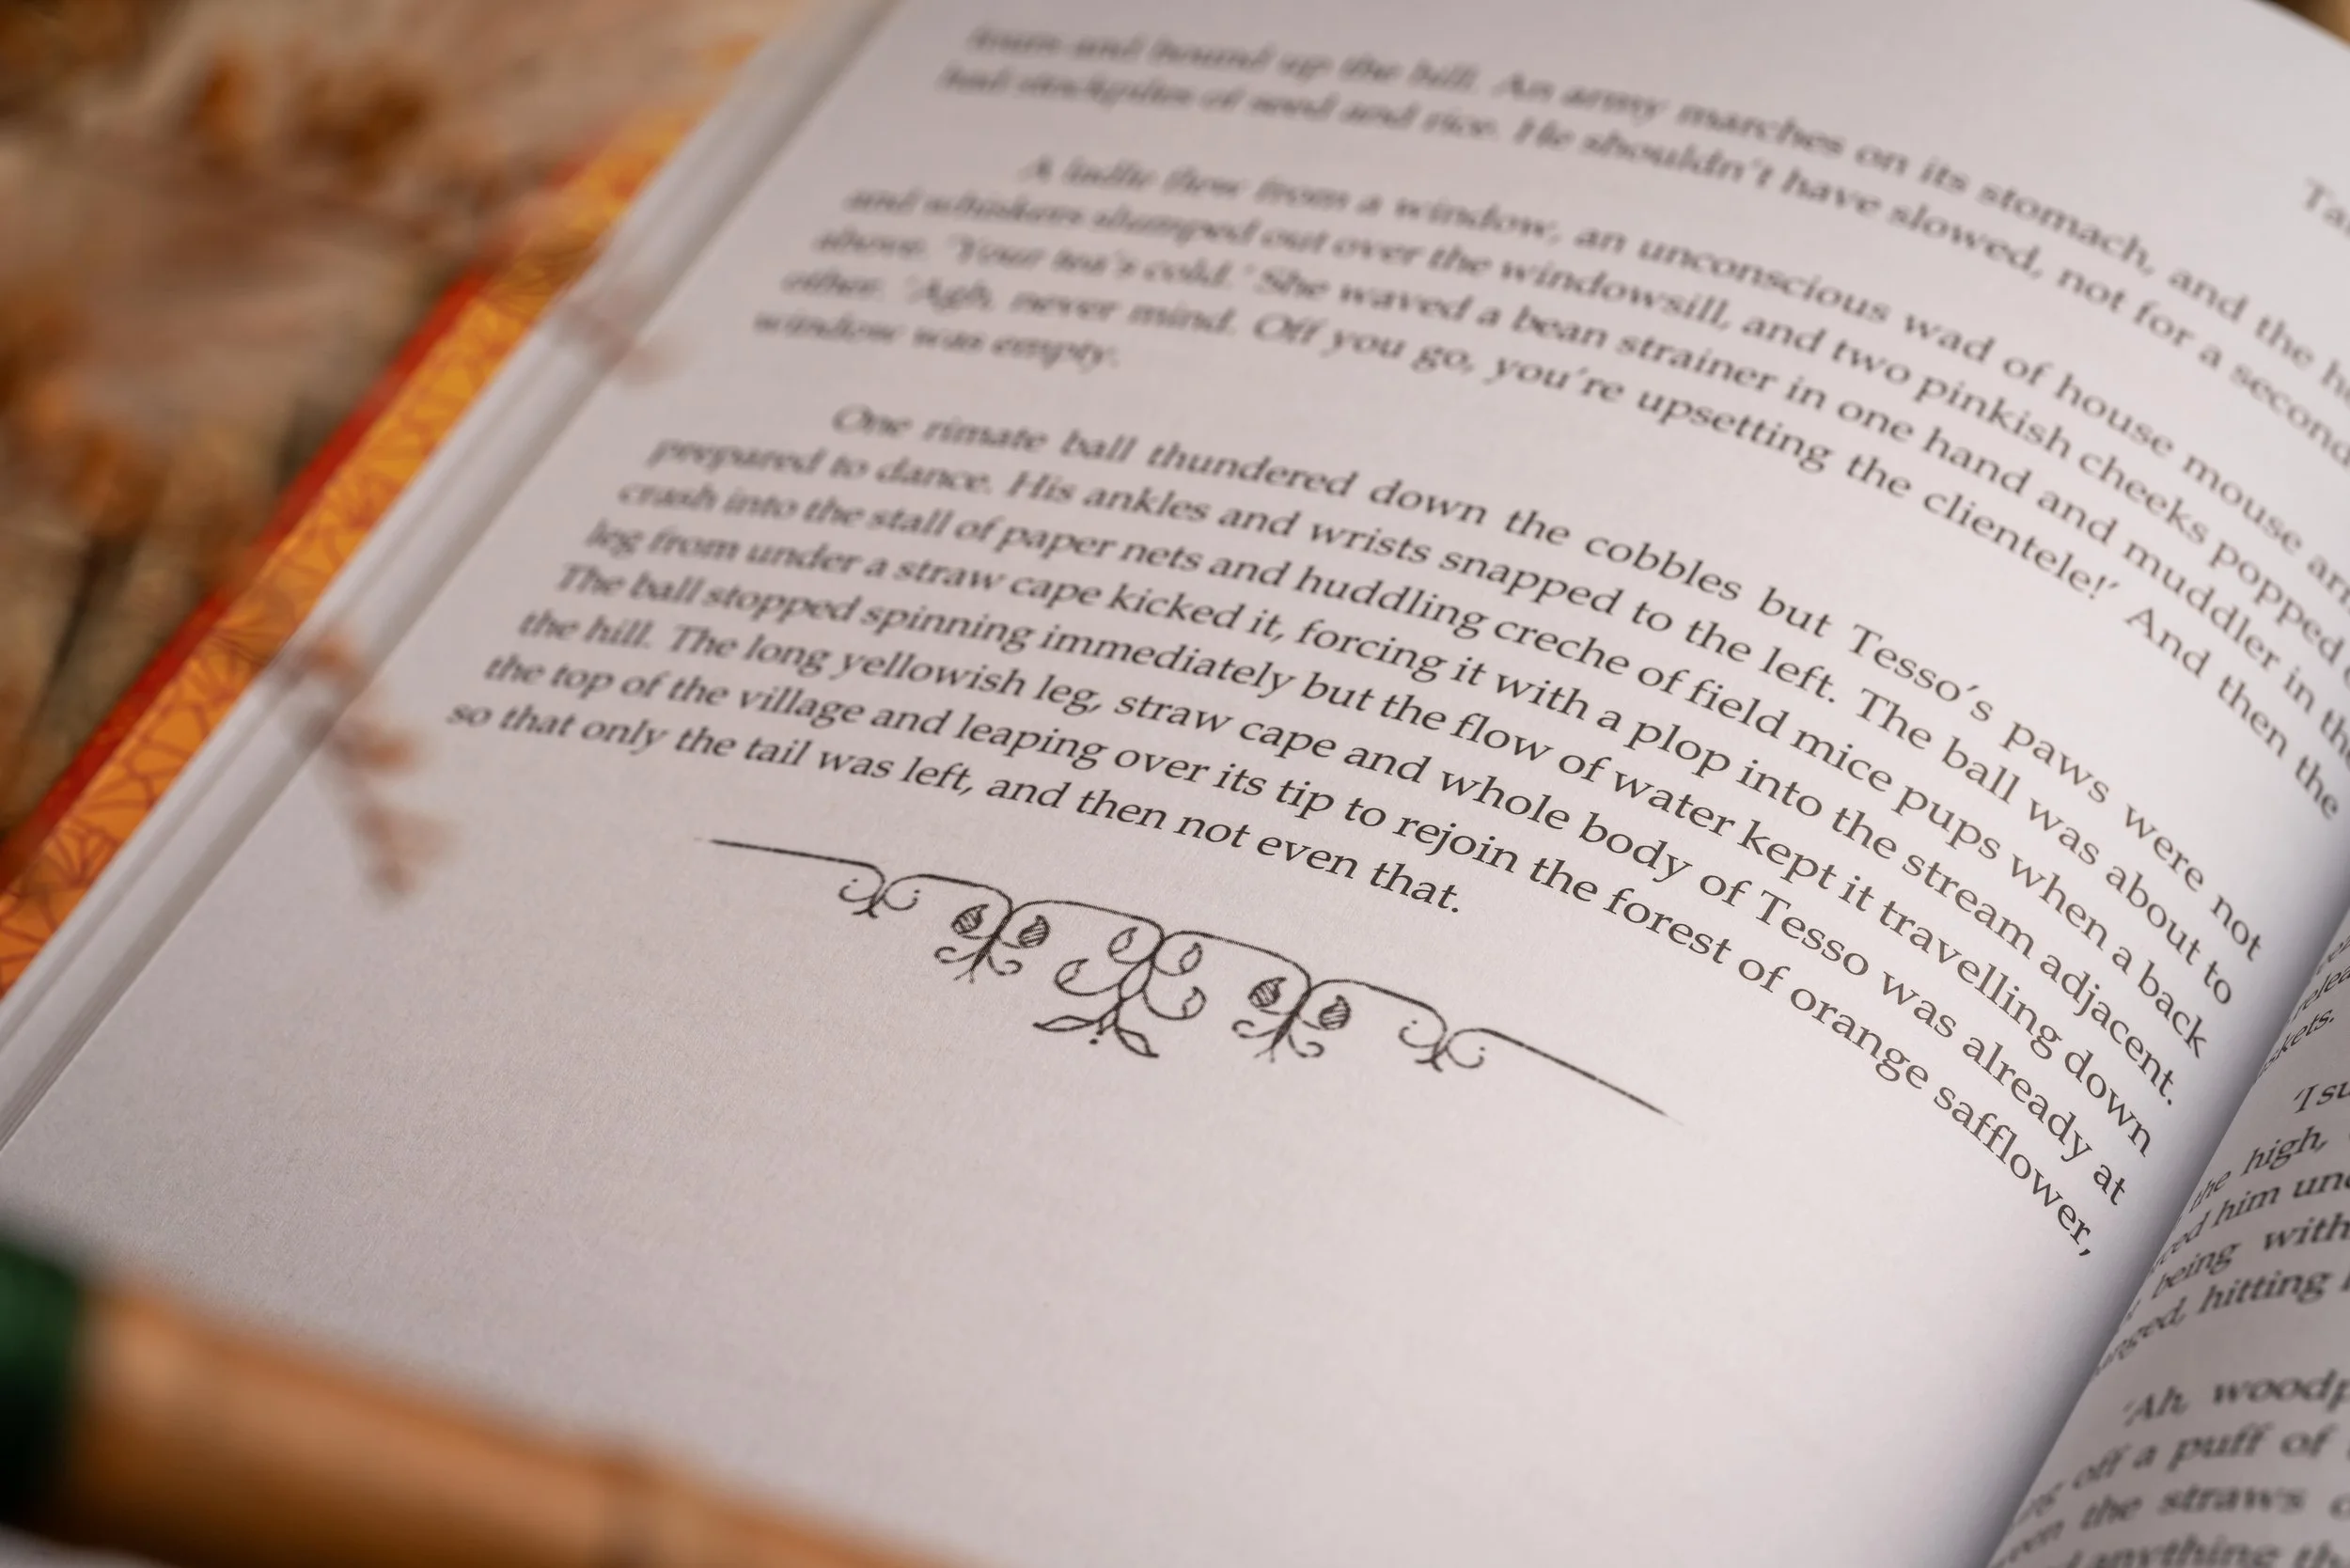 and bound up the hill. An army marches on its stomach, and the
had stockpiles of seed and rice. He shouldn't have slowed, not for a second
A ladle flew from a window, an unconscious wad of house mouse
and whiskers slumped out over the windowsill, and two pinkish cheeks popped
above. 'Your tea's cold.' She waved a bean strainer in one hand and muddler in the
other. 'Agh, never mind. Off you go, you're upsetting the clientele!' And then the
window was empty.
One rimate ball thundered down the cobbles but Tesso's paws were not
prepared to dance. His ankles and wrists snapped to the left. The ball was about to
crash into the stall of paper nets and huddling creche of field mice pups when a back
leg from under a straw cape kicked it, forcing it with a plop into the stream adjacent.
The ball stopped spinning immediately but the flow of water kept it travelling down
the hill. The long yellowish leg, straw cape and whole body of Tesso was already at
the top of the village and leaping over its tip to rejoin the forest of orange safflower,
so that only the tail was left, and then not even that.
the high,
him
being with
hitting
'Ah,
off a puff of
the straws